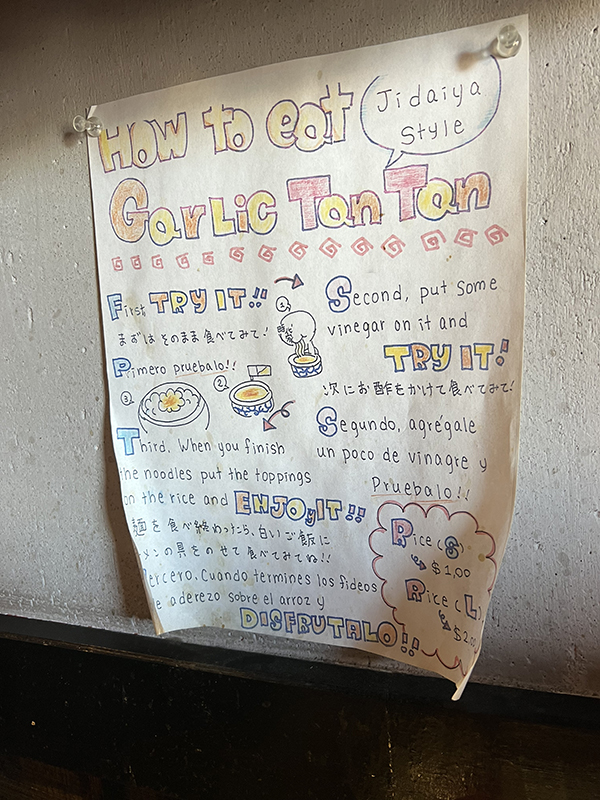 How to eat
Jidaiya
Style
Garlic Tan Tan
First, TRY IT!!
まずはそのまま食べてみて!
Pimero pruebalo!!
1,
2,
3,
Second, put some
vinegar on it and
TRY IT!
次にお酢をかけて食べてみて!
Segundo, agrégale
un poco de vinagre y
Pruebalo!!
Third. When you finish
the noodles put the toppings
on the rice and ENJOY IT!!
麺を食べ終わったら、白いご飯に
メンの具をのせて食べてみてね!!
Tercero. Cuando termines los fideos
e aderezo sobre el arroz y
DISFRUTALO!!
Rice (S)
$1,00
Rice (L)
$2,00